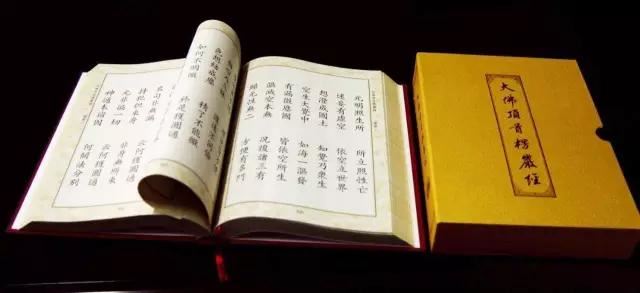 元明照生所 所立照性亡
迷妄有虛空 依空立世界
想澄成國土 知覺乃眾生
空生大覺中 如海一漚發
有漏微塵國 皆依空所生
漚滅空本無 況復諸三有
歸元性無二 方便有多門
色想結成塵 精了不能徹
如何不明徹 於是獲圓通
名句非無漏 云何獲圓通
持犯但束身 非身無所束
元非遍一切 云何獲圓通
神通本宿因 何關法分別
大佛頂首楞嚴經